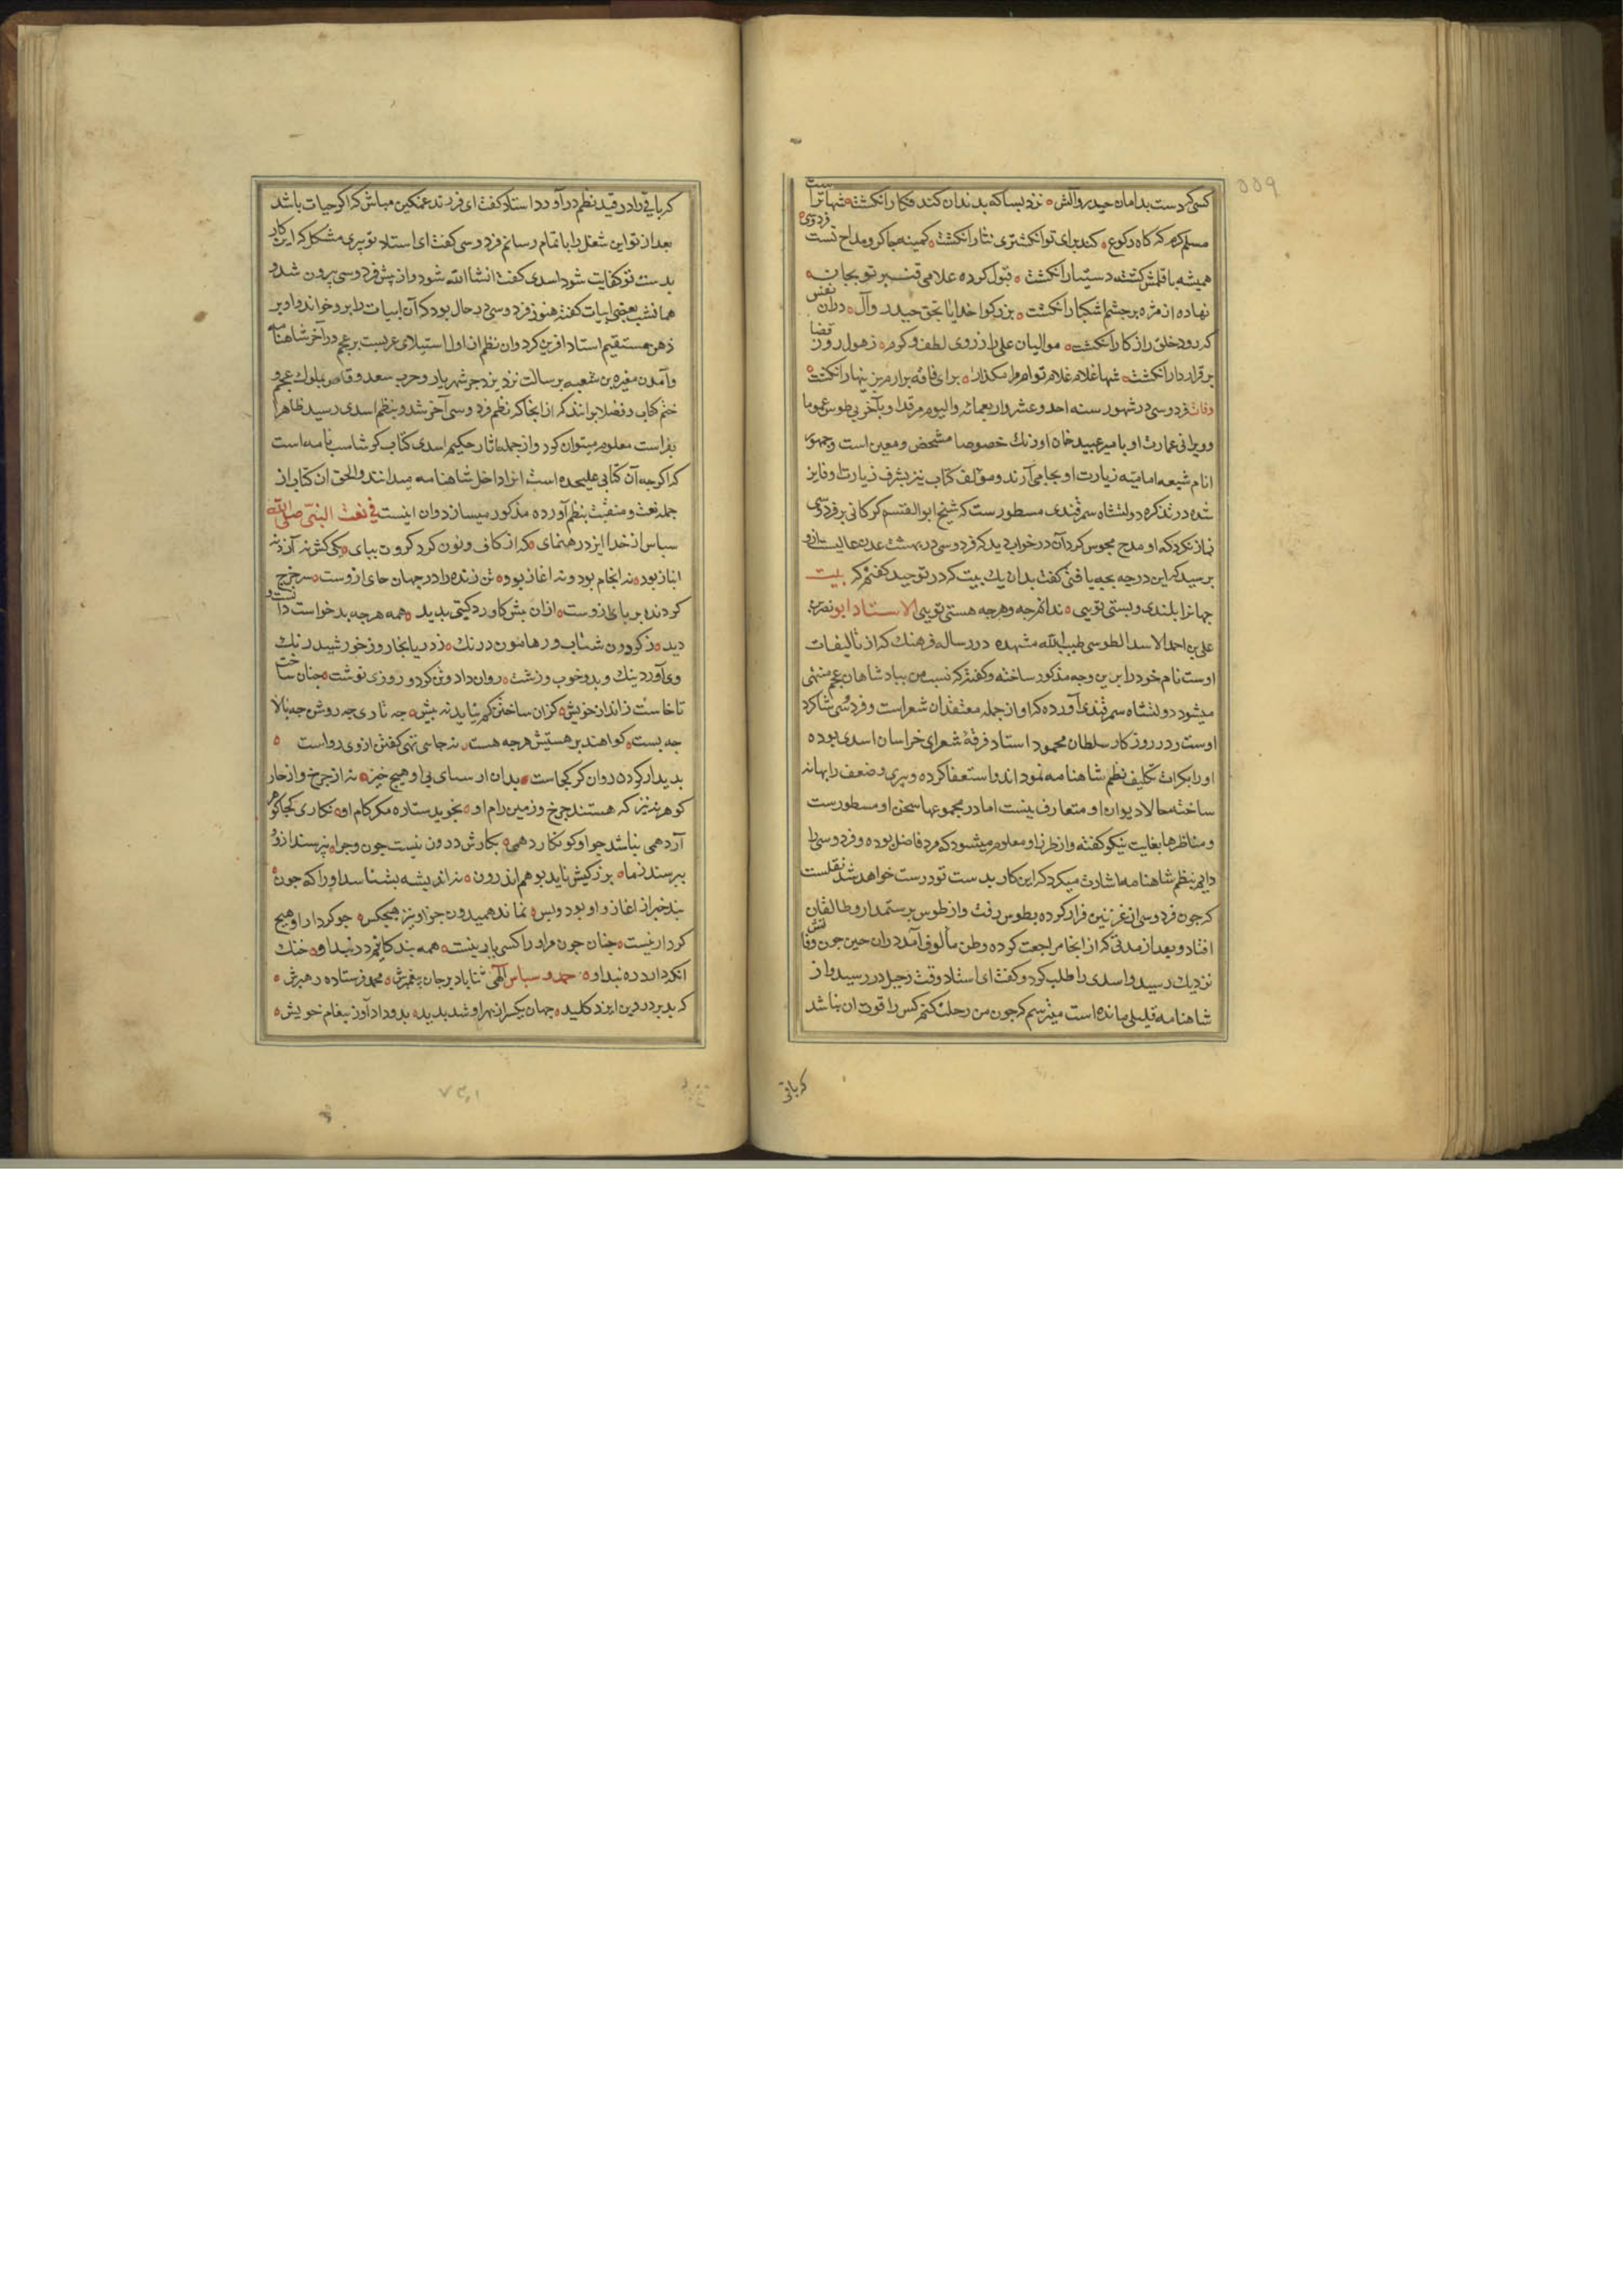 ۵۵۹
کسی کو دست بدامان حیدر و آلش نزد بسا که بدندان کند فکار انکشت شها ترا ست
مسلم کرم که کاه رکوع کند برای تو انکشتری نثار انکشت کمینه چاکر و مداح تست فردوسی
همیشه با قلمش کشته دستیار انکشت قبول کرده غلامی قنبر تو بجان
نهاده از مژه بر چشم اشکبار انکشت بزرکوا خدایا بحق حیدر و آل دران نفس
که رود خلق را ز کار انکشت موالیان علی را ز روی لطف و کرم ز هول روز قضا
بر قرار دار انکشت شها غلام غلام توام مرا مکذار برای فاقه برارم بزینهار انکشت
وفات فردوسی در شهور سنه احد و عشر و اربعمائه والیوم مرقد او بآخر بی طوس عموما
و ویرانی عمارت او بامیر عبید خان اوزبک خصوصا مشخص و معین است و جمهور
انام شیعه امامیه زیارت او بجا می آرند و مؤلف کتاب نیز بشرف زیارت او فایز
شده در تذکره دولتشاه سمرقندی مسطورست که شیخ ابوالقسم کرکانی بر فردوسی
نماز نکرد که او مدح مجوس کرد آن در خواب دید که فردوسی در بهشت عدن عالیست ازو
پرسید که این درجه بچه یافتی کفت بدان یک بیت که در توحید کفتم که بیت
جهانرا بلندی و پستی تویی ندانم چه و هرچه هستی تویی الاستاد ابو نصر
علی بن احمد الاسد الطوسی طیب الله مشهده در رساله فرهنک که از تالیفات
اوست نام خود را برین وجه مذکور ساخته و کفته که نسب من ببادشاهان عجم منتهی
میشود دولتشاه سمرقندی آورده که او از جمله معتقدان شعر است و فردوسی شاکرد
اوست و در روزکار سلطان محمود استاد فرقهٔ شعرای خراسان اسدی بوده
او را بکرات تکلیف نظم شاهنامه نمودند و استعفا کرده و پیری و ضعف را بهانه
ساخته حالا دیوان او متعارف نیست اما در مجموعها سخن او مسطورست
و مناظرها بغایت نیکو کفته و از طرز او معلوم میشود که مرد فاضل بوده و فردوسی را
دایم بنظم شاهنامه اشارت میکرد که این کار بدست تو درست خواهد شد نقلست
که چون فردوسی از غزنین فرار کرده بطوس رفت و از طوس برستمدار و طالقان
افتاد و بعد از مدتی که از انجا مراجعت کرده وطن مألوف آمد دران حین چون وفاتش
نزدیک رسید و اسدی را طلب کرد و کفت ای استاد وقت رحیل در رسید و از
شاهنامه قلیلی مانده است میترسم که چون من رحلت کنم کس را قوت ان نباشد
که باقی
که باقی را در قید نظم در آورد استاد کفت ای فرزند غمکین مباش که اکر حیات باشد
بعد از تو این شغل را باتمام رسانم فردوسی کفت ای استاد تو پیری مشکل که این کار
بدست تو کفایت شود اسدی کفت انشا الله شود و از پیش فردوسی بیرون شد و
همانشب بعضی ابیات کفته هنوز فردوسی در حال بود که آن ابیات را برو خواند و او بر
ذهن مستقیم استاد افرین کرد و ان نظم از اول استیلای عربست بر عجم در آخر شاهنامه
و آمدن مغیره بن شعبه برسالت نزد یزدجر شهریار و حرب سعد وقاص بملوک عجم و
ختم کتاب و فضلا برانند که از انجا که نظم فردوسی آخر شد و بنظم اسدی رسید ظاهرا
بفراست معلوم میتوان کرد و از جمله اثار حکیم اسدی کتاب کرشاسب نامه است
که اکرچه آن کتابی علیحده است انرا داخل شاهنامه میدانند والحق ان کتاب از
جمله نعت و منقبت بنظم آورده مذکور میسازد و ان اینست فی نعت النبی صلی الله
سپاس از خدا ایزد رهنمای که از کاف و نون کرد کردون بپای یکی کش نه آز و نه
انباز بود نه انجام بود و نه اغاز بود تن زنده را در جهان جای ازوست سر چرخ
کردنده بر پای ازوست ازان پیش کاورد کیتی بدید همه هرچه بد خواست دانست و
دید ز کردون شتاب و ز هامون درنک ز دریا بخار و ز خورشید رنک
وی آورد نیک و بد و خوب و زشت روان داد و تن کرد و روزی نوشت چنان ساخت
تا خاست ز انداز خویش کزان ساختن کم نیاید نه بیش چه تاری چه روشن چه بالا
چه پست کواهند بر هستیش هرچه هست نه جایی تهی کفتن از وی رواست
بدیدار کردن روان کو کجاست بدان ار سپای بی او هیچ خیز نه از چرخ و از چار
کوهر نیز که هستند چرخ و زمین رام او نجوید ستاره مکر کام او نکاری کجا کوهر
آرد همی نباشد چو او کو نکارد همی بکارش درون نیست چون و چرا نپرسند ازو
بپرسند ز ما بزرکیش ناید بوهم اندرون نه اندیشه بشناسد او را که چون
نبد چیز از اغاز و او بود و بس نماند همیدون جز او نیز هیچکس چو کردار او هیچ
کردار نیست چنان چون مراو را کسی یار نیست همه بندکانیم در بند او خنک
انکه دارد ره پند او حمد و سپاس الهی ثنا باد بر جان پیغمبرش محمد فرستاده رهبرش
که بد بر در دین ایزد کلید جهان یکسر از بهر او شد بدید بدو داد آورز پیغام خویش